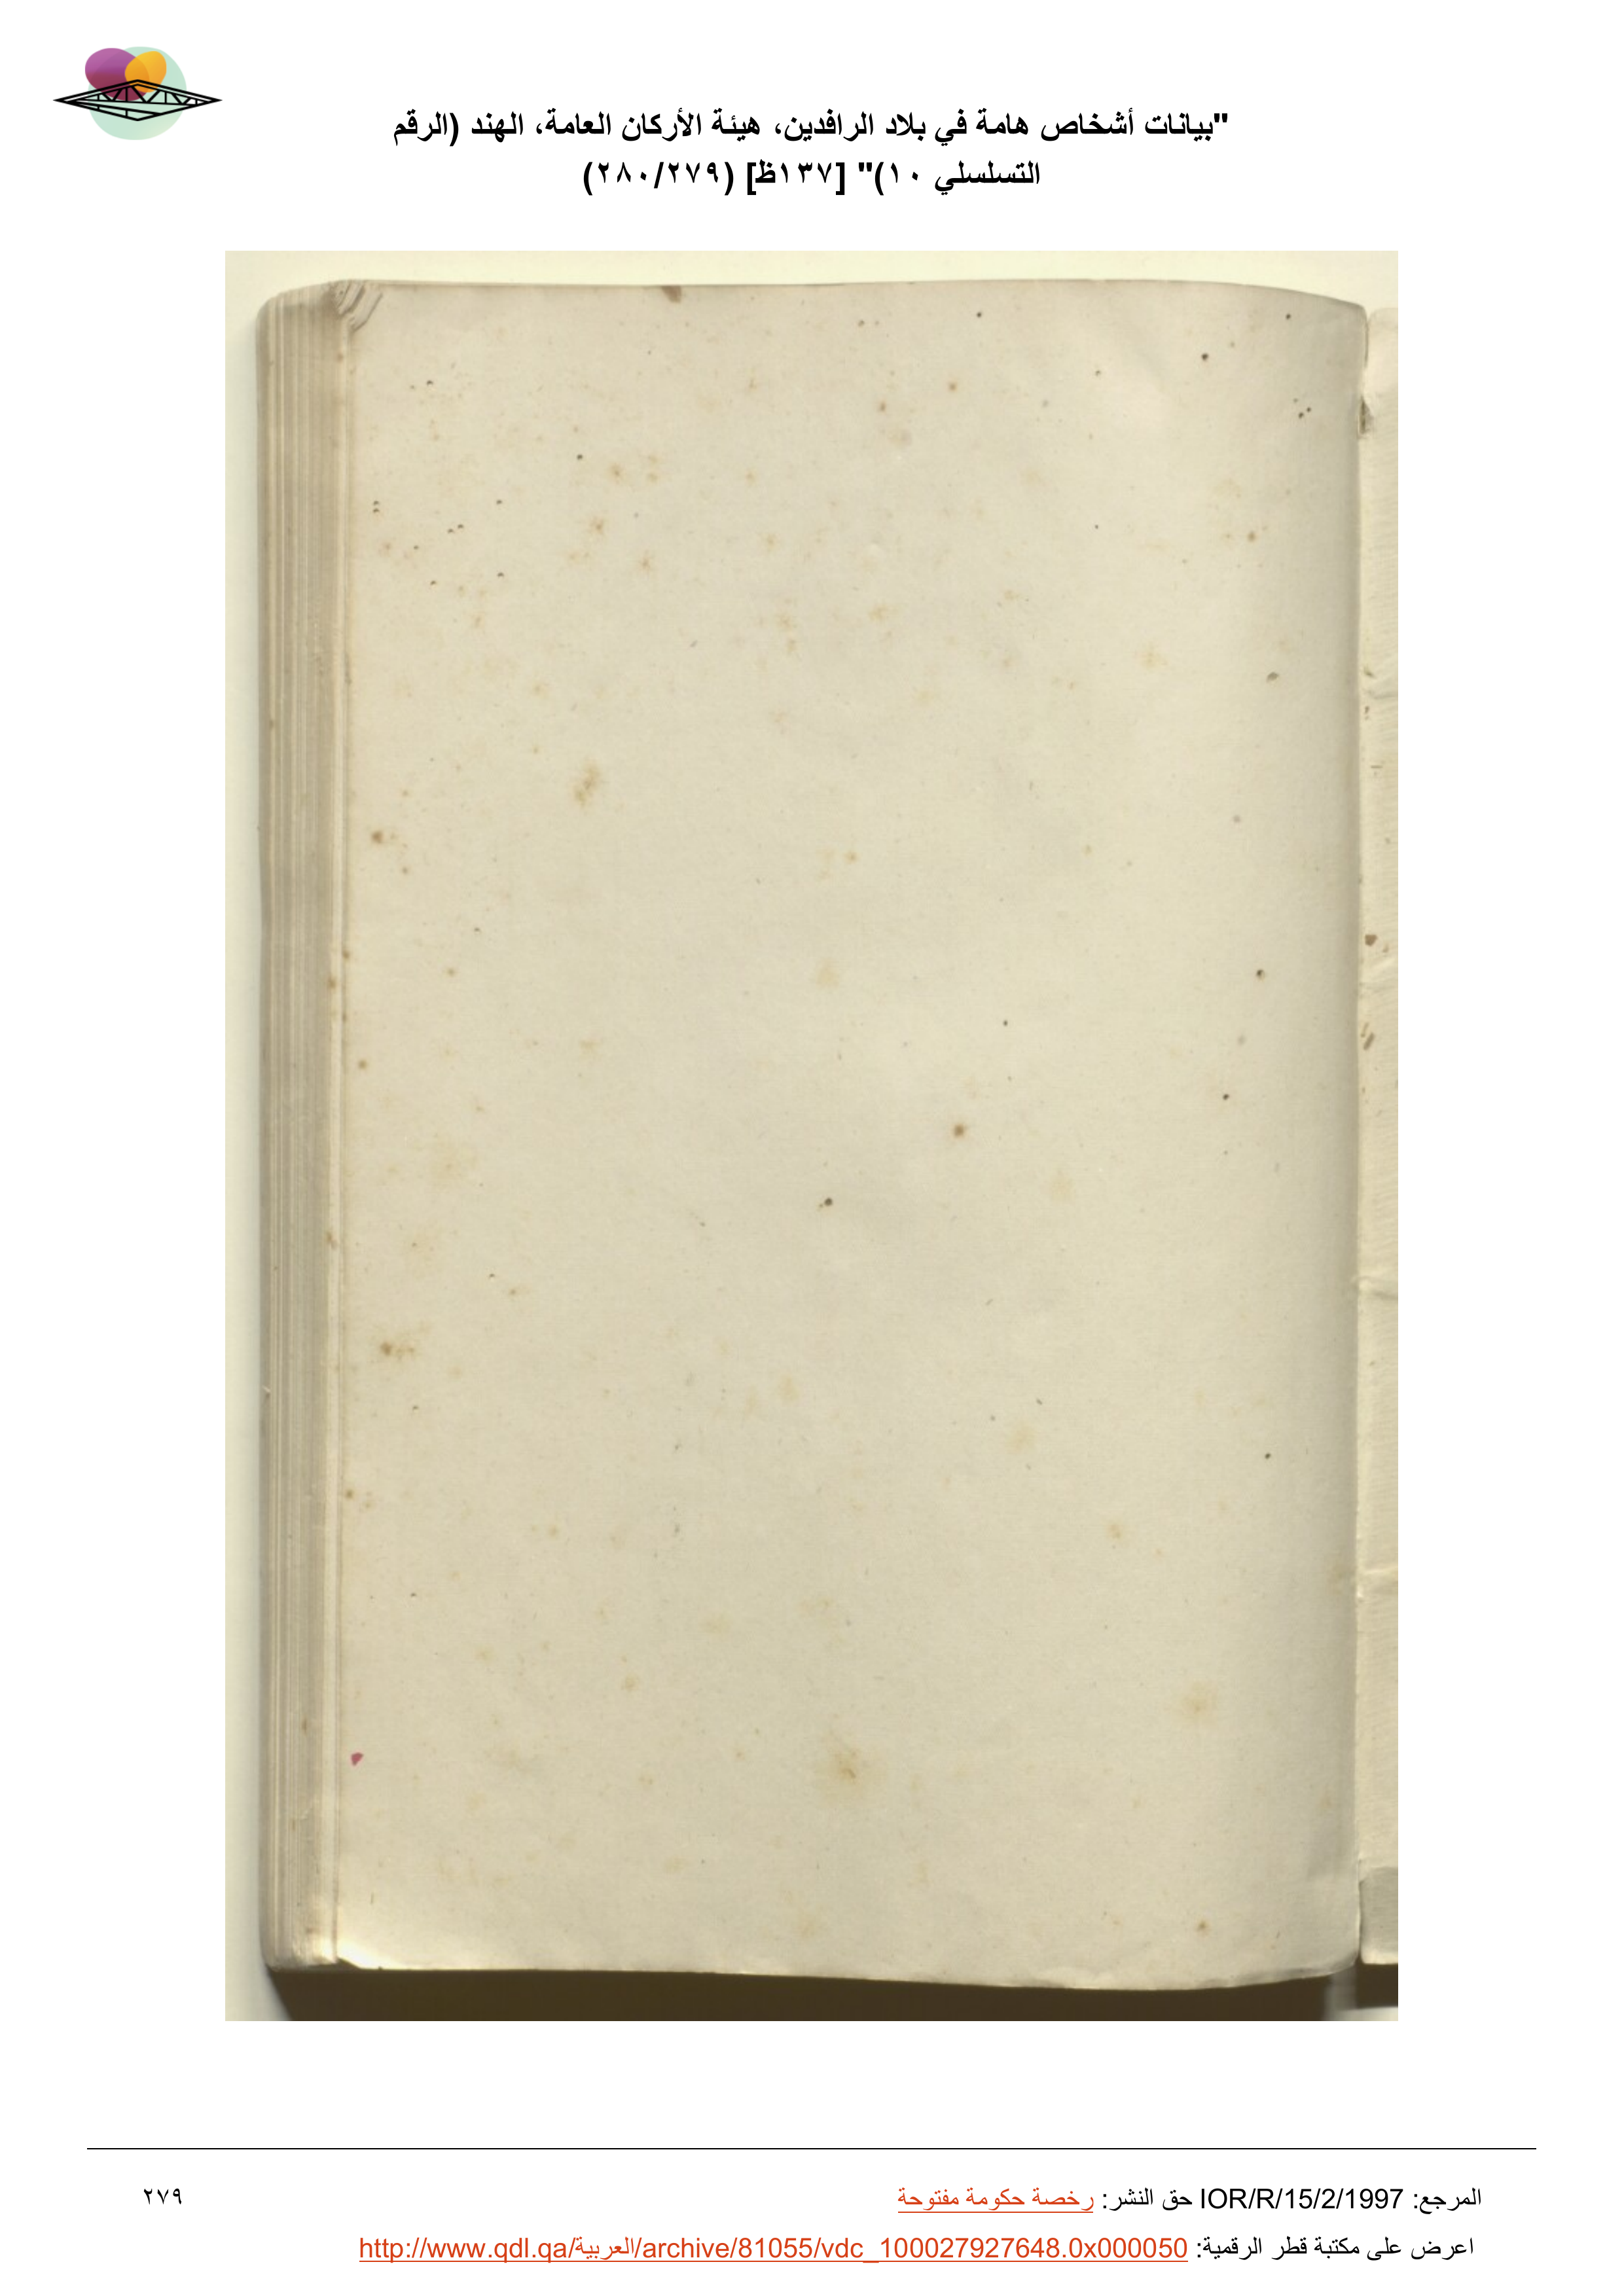 "بيانات أشخاص هامة في بلاد الرافدين، هيئة الأركان العامة، الهند (الرقم
التسلسلي ١٠)" [١٣٧ظ] (٢٨٠/٢٧٩)
المرجع: IOR/R/15/2/1997 حق النشر: رخصة حكومة مفتوحة
٢٧٩
اعرض على مكتبة قطر الرقمية: http://www.qdl.qa/العربية/archive/81055/vdc_100027927648.0x000050